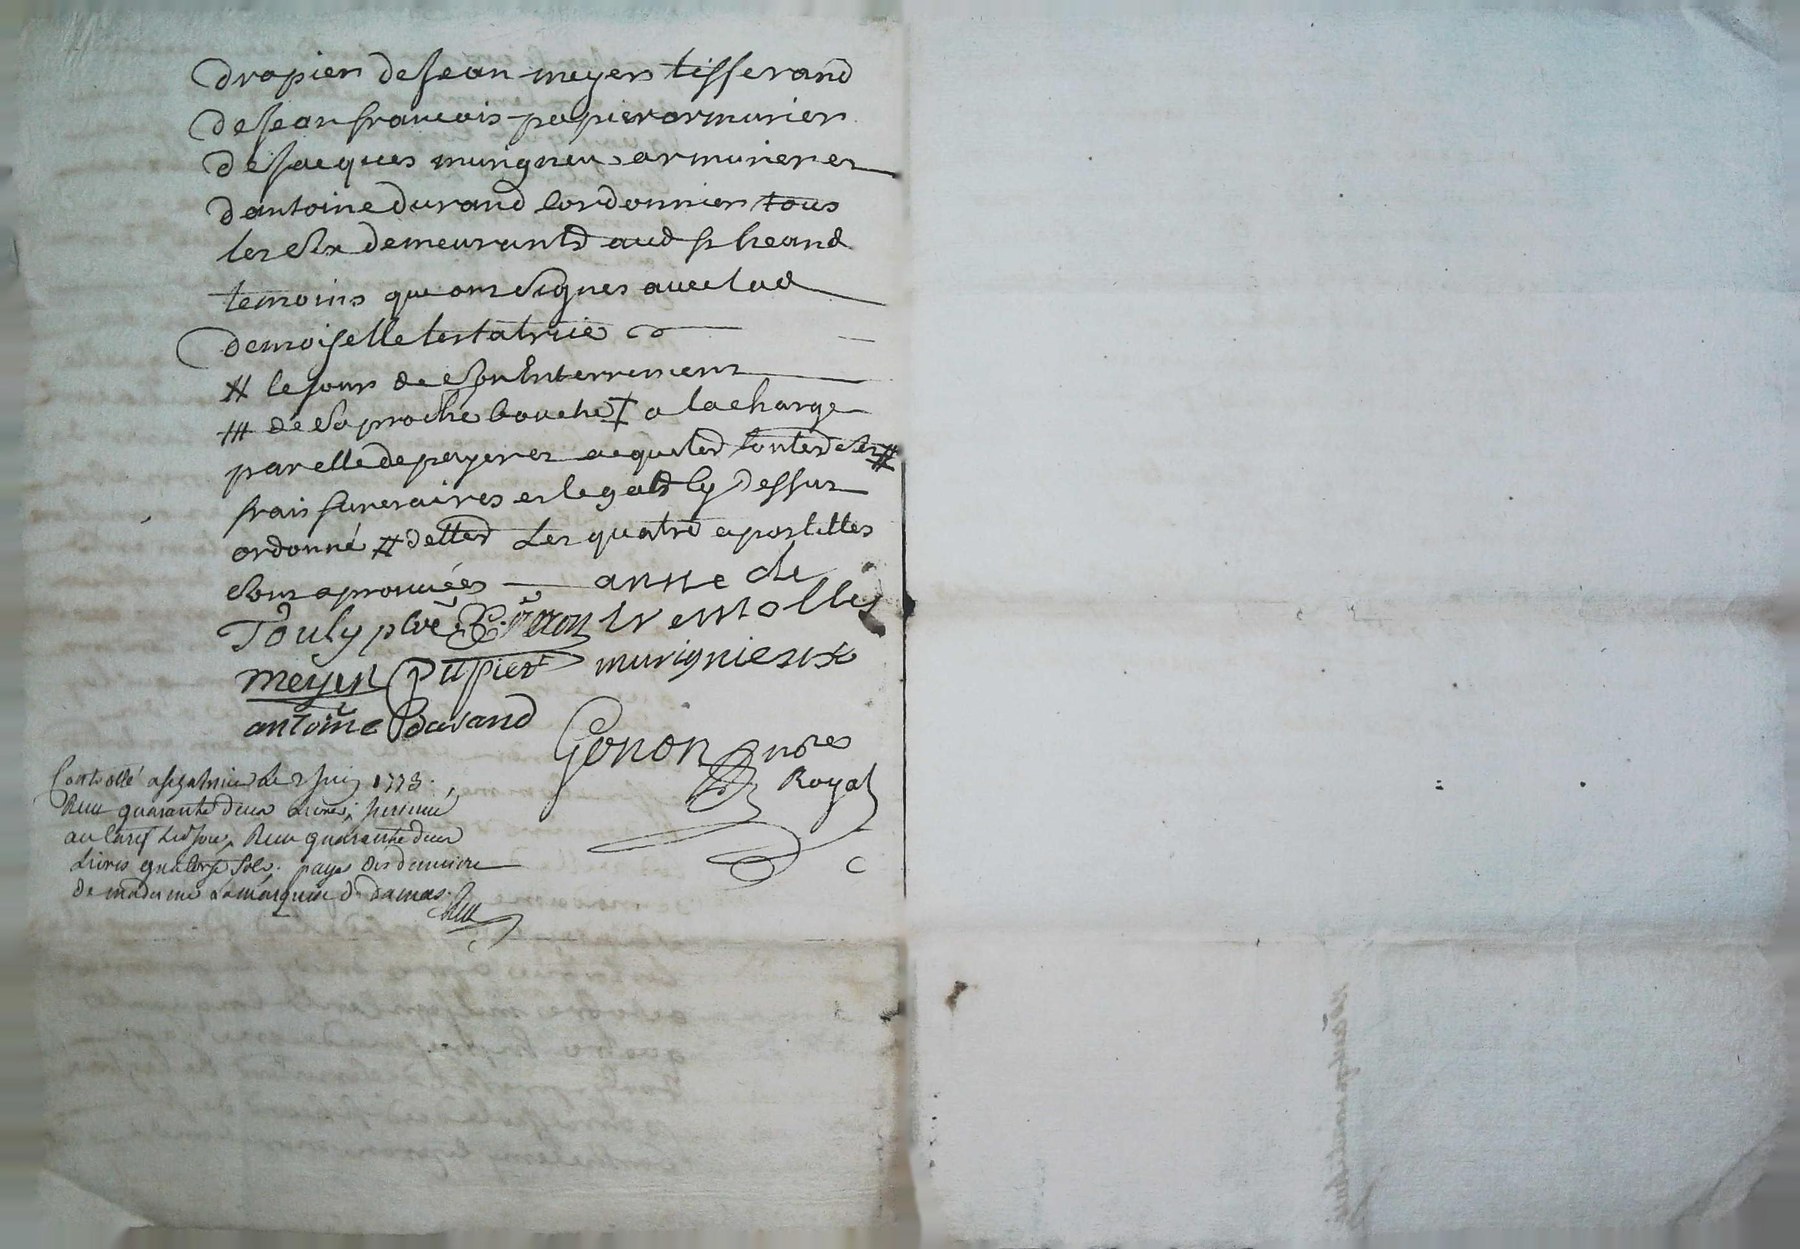 drapier de Jean meyer tisserand
de Jean francois papier armurier
de Jacques murigneu armurier et
d antoine durand Cordonnier tous
les Six demeurants aud st heand
temoins que ont Signes avec lad
demoiselle testatrice
# le jour de Son Enterrement
de Sa proche bouche a la charge
par elle de payer et acquiter toutes Ses #
frais funeraires et legats Cy dessus
ordonné # dettes Les quatre apostilles
Sont aprouvées — anne de
Touly ptre tremolles
meyer papier murignieux
antoine Durand
Gonon nore
Royal
Controllé a st galmier Le 2 Juin 1773
Reçu quarante deux Livres,
au Reçu quarante deux
Livres quatorze Sols. payés des deniers
de madame La marquise de damas